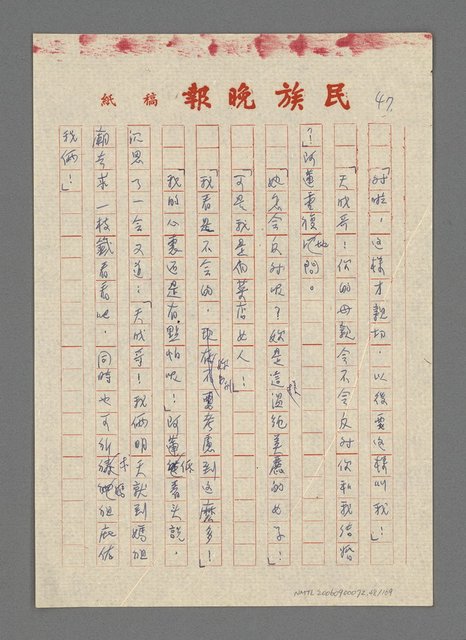 民族晚報 稿紙
47
「對啦,這樣才親切,以後要這樣叫我!」
「天成哥!你的母親會不會反對你和我結婚
?」阿蓮重復地問。
「她怎會反對呢?妳是這樣溫純美麗的女子!」
「可是我是個菜店女人!」
「我看是不會的,現在妳不要考慮到這麼多!」
「我的心裏還是有點怕呢!」阿蓮低著頭說。
沉思了一會又道:「天成哥!我倆明天就到媽祖
廟去求一枝籤看看吧,同時也可祈求媽祖庇佑
我倆!」
NMTL20060900072.48/169